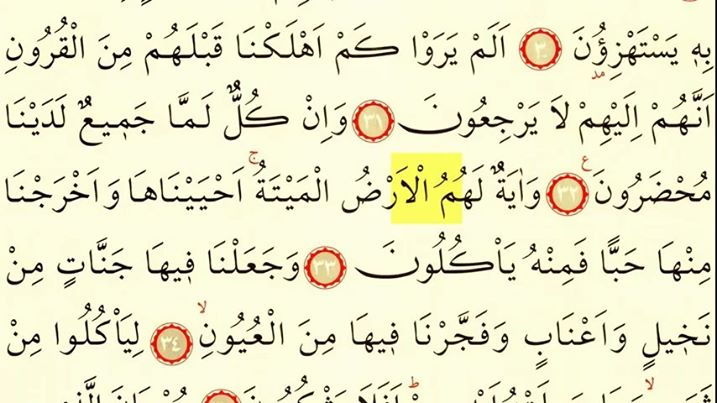 بِهٖ يَسْتَهْزِؤُ۫نَ ﴿٣٠﴾ اَلَمْ يَرَوْا كَمْ اَهْلَكْنَا قَبْلَهُمْ مِنَ الْقُرُونِ
اَنَّهُمْ اِلَيْهِمْ لَا يَرْجِعُونَ ﴿٣١﴾ وَاِنْ كُلٌّ لَمَّا جَمٖيعٌ لَدَيْنَا
مُحْضَرُونَ ﴿٣٢﴾ وَاٰيَةٌ لَهُمُ الْاَرْضُ الْمَيْتَةُ اَحْيَيْنَاهَا وَاَخْرَجْنَا
مِنْهَا حَبًّا فَمِنْهُ يَاْكُلُونَ ﴿٣٣﴾ وَجَعَلْنَا فٖيهَا جَنَّاتٍ مِنْ
نَخٖيلٍ وَاَعْنَابٍ وَفَجَّرْنَا فٖيهَا مِنَ الْعُيُونِ ﴿٣٤﴾ لِيَاْكُلُوا مِنْ